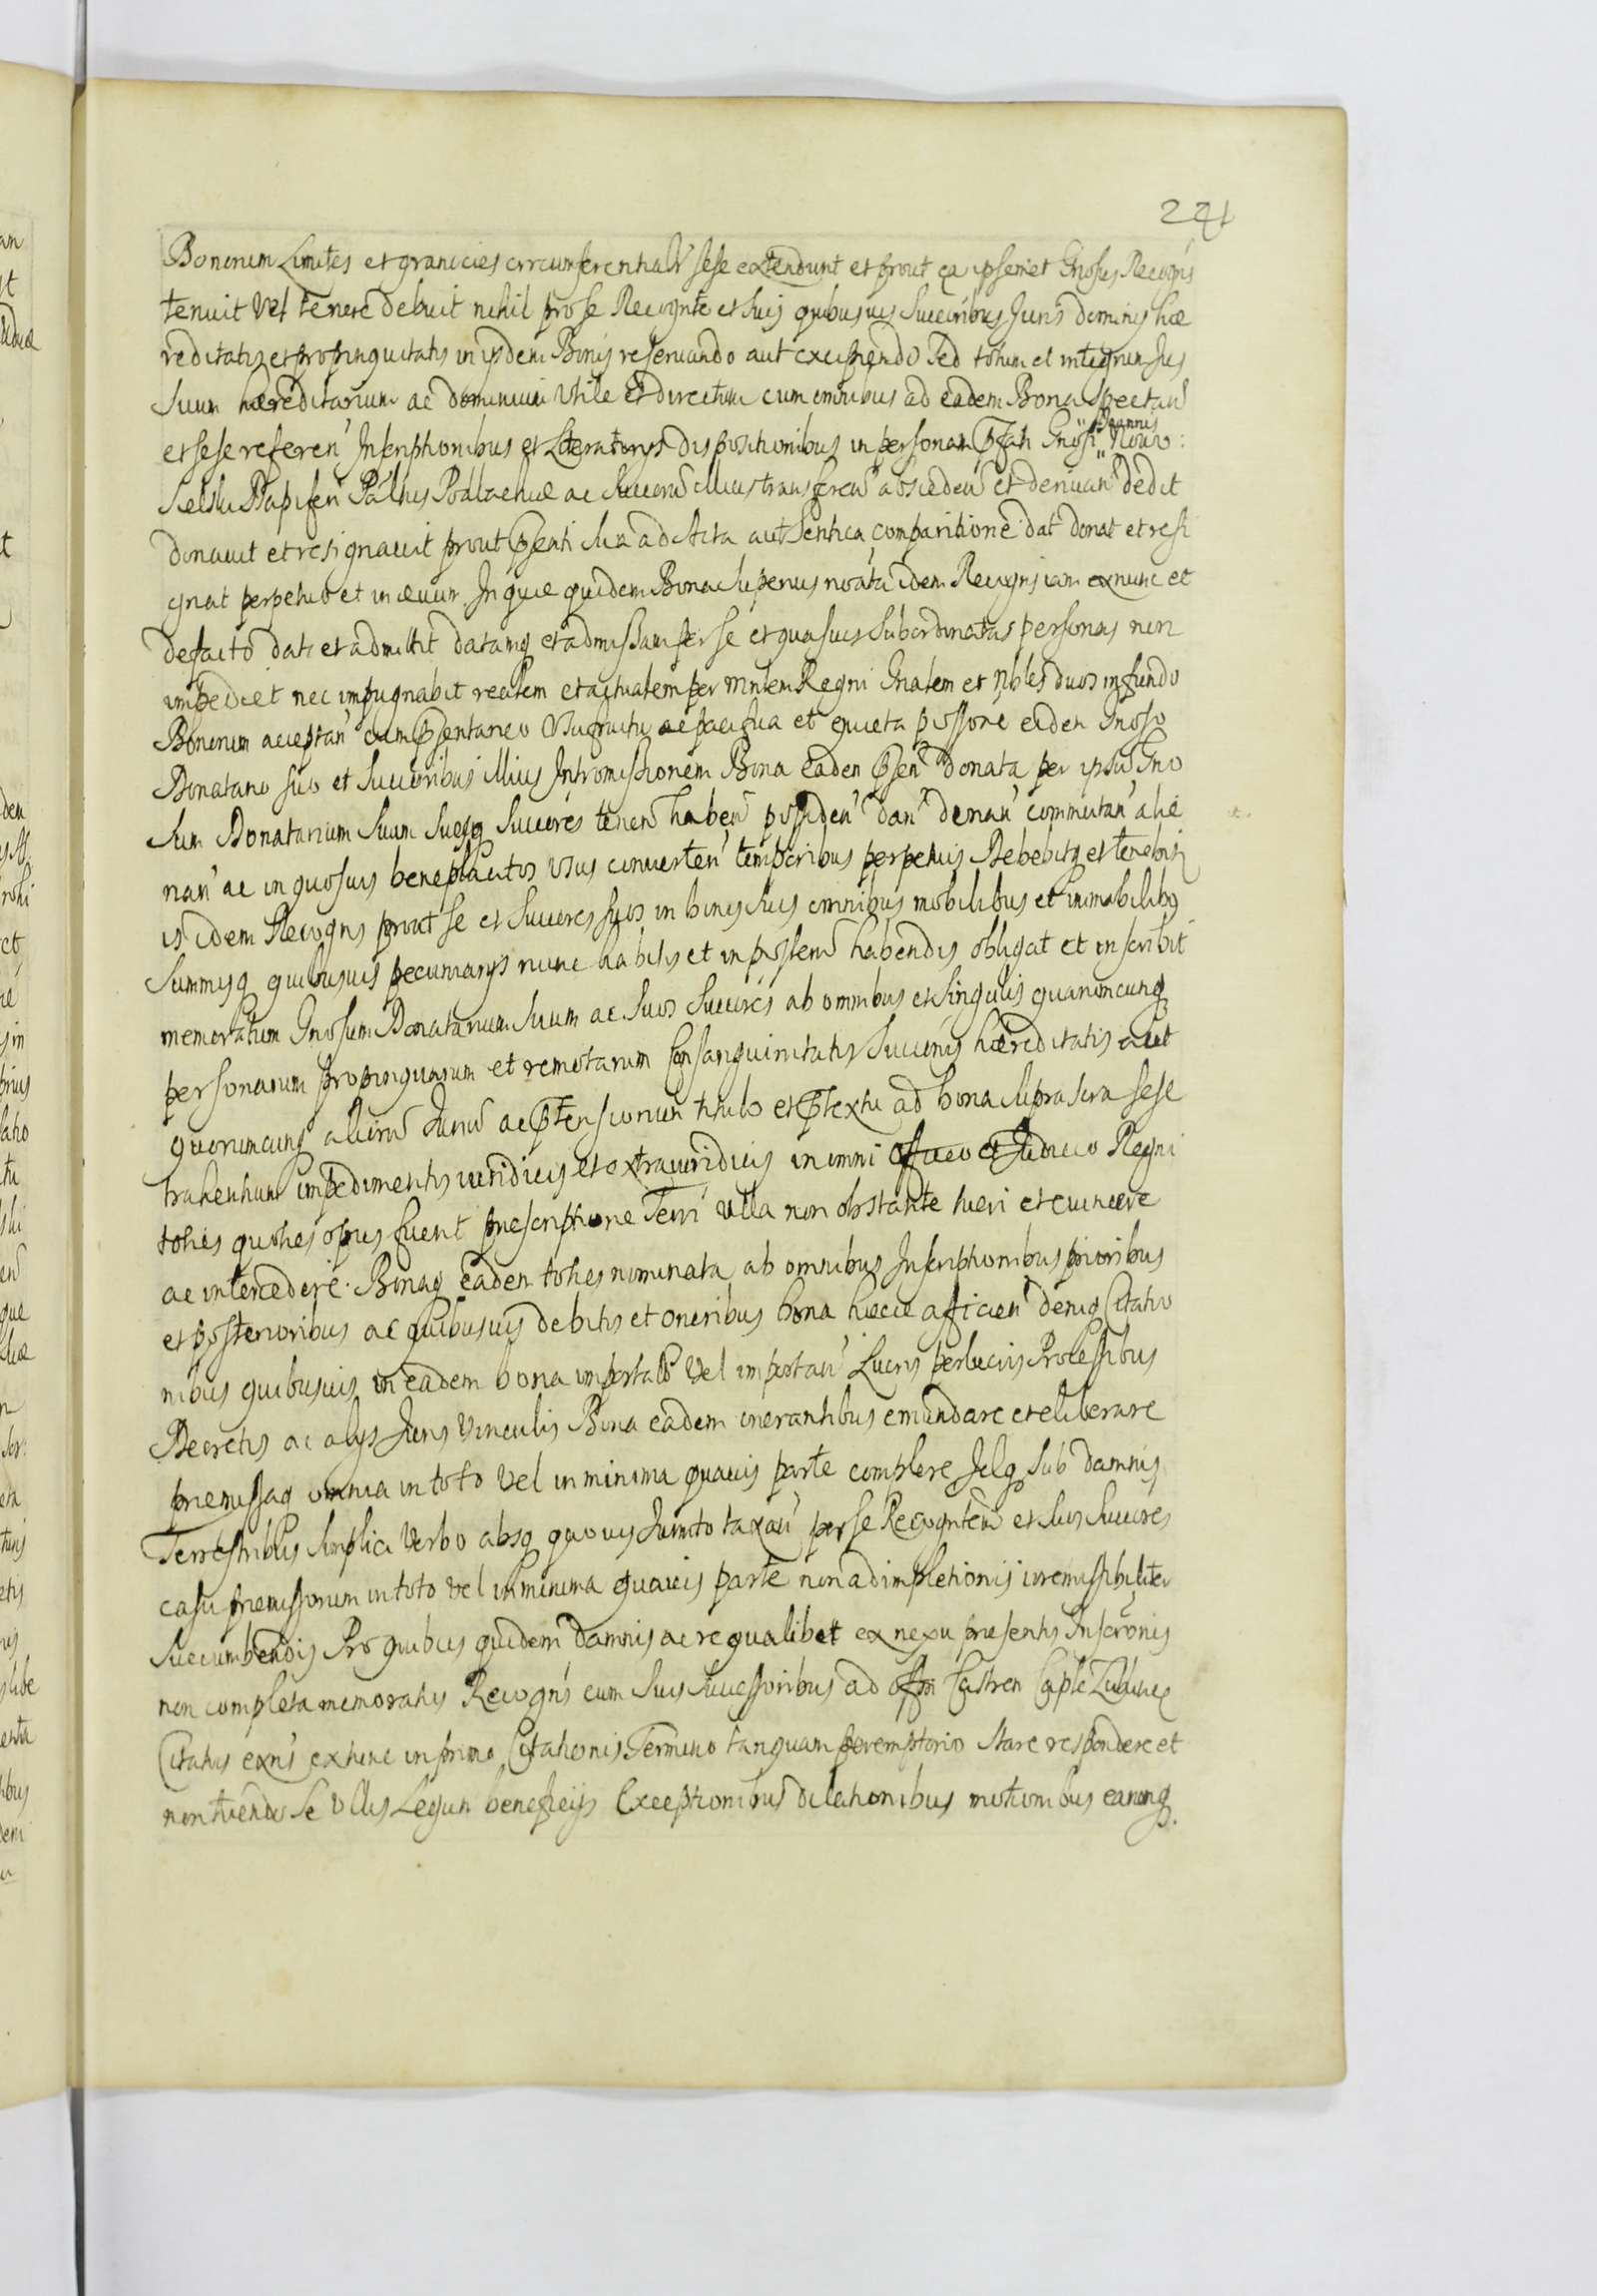 221
Bonorum Limites et granicies circumferentialr sese extendunt et prout ea ipsemet Gnosus Recogns
tenuit vel tenere debuit nihil pro se Recognte et suis quibusuis Succoribus Juris dominij hæ
reditatis et propinquitatis in ijsdem Bonis reseruando aut excipiendo Sed totum et integrum Jus
Suum hæreditarium ac dominium utile et directum cum omnibus ad eadem Bona Spectan
et sese referen Inscriptionibus et Literatorijs dispositionibus in personam pfati Gnosi Joannis Nowo:
sielski Dapiferi Palnus Podlachiæ ac Succorum illius transferen abscieden et deriuan dedit
donauit et resignauit prout psenti sua ad Acta authentica comparitione dat donat et resi
gnat perpetuo et in æuum In quæ quidem Bona superius noata idem Recogns iam exnunc et
defacto dat et admittit datamq et admissam per se et quasuis Subordinatas personas non
impediet nec impugnabit realem et actualem per Mntem Regni Gnalem et Nbles duos in fundo
Bonorum acceptan cum psentaneo Usufructu ac pacifica et quieta possone eidem Gnoso
Donatario suo et Succoribus illius Intromissionem Bona eadem psen donata per ipsum Gno
sum Donatarium Suum Suosq Succores tenen haben possiden dan donan commutan alie
nan ac in quosuis beneplacitos usus conuerten temporibus perpetuis Debebitq et tenebitr
is idem Recogns prout se et Succores suos in bonis suis omnibus mobilibus et immobilibus
Summisq quibusuis pecuniarijs nunc habitis et in posterum habendis obligat et inscribit
memoratum Gnosum Donatarium Suum ac Suos Succores ab omnibus et singulis quarumcunq
personarum propinquarum et remotarum Consanguinitatis Succonis hæreditatis aut
quorumcunq aliorum Jurium ac ptensionum titulo et ptextu ad bona suprascra sese
trahentium impedimentis iuridicis et extraiuridicis in omni officio et Judicio Regni
toties quoties opus fuerit præscriptione Terri ulla non obstante tueri et euincere
ac intercedere. Bonaq eadem toties nominata ab omnibus Inscriptionibus prioribus
et posterioribus ac quibusuis debitis et oneribus bona hæcce afficien deniq Citatio
nibus quibusuis in eadem bona importatis vel importan Lucris perlucris Processibus
Decretis ac alijs Juris Vinculis Bona eadem onerantibus emundare et eliberare
præmissaq omnia in toto vel in minima quauis parte complere Idq Sub damnis
Terrestribus simplici verbo absq quouis Juramto taxan per se Recogntem et suos Succores
casu præmissorum in toto vel in minima quauis parte non adimpletionis irremissibiliter
succumbendis Pro quibus quidem damnis ac re qualibet ex nexu præsentis Insconis
non completa memoratus Recogns cum Suis Successoribus ad offm Castren Caple Lublinen
Citatus exns ex tunc in primo Citationis Termino tanquam peremptorio Stare respondere et
non tuendo se ullis Legum beneficijs Exceptionibus dilationibus motionibus earumq.